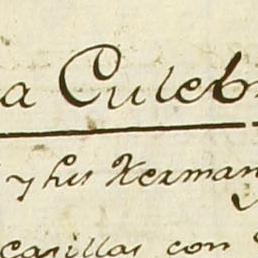 a Culeb
y sus Herman
casillas con